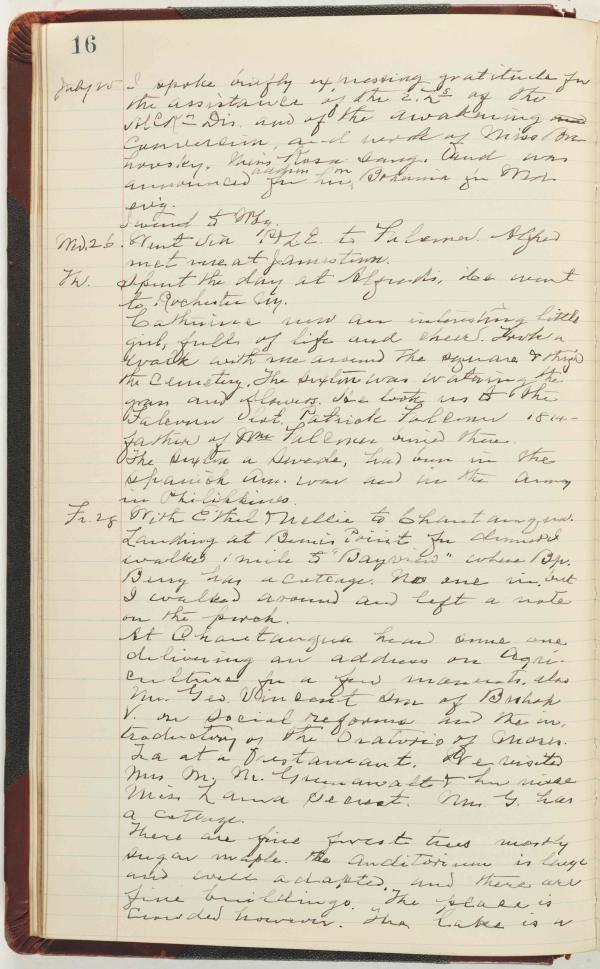 16
July 25 I spoke briefly expressing gratitude for
the assistance of the 2. of the
McK Dis. and of the awakening
Conversion, and work of Miss
hovsky. Miss Rosa sang. and was
announced for her admn Bohemia for Mon
evg.
I went to
Wd. 26. Went via P&LE. to Falconer. Alfred
met me at Jamestown.
Th. Spent the day at Alfreds, he went
to Rochester Ny.
Catharine now an interesting little
girl, full of life and cheer. Took a
walk with me around the square & thro
the Cemetery. The sexton was watering the
grass and flowers. He took us to the
Falconer Plot. Patrick Falconer 18
father of Wm Falconer buried there.
The sexton a Swede, had been in the
Spanish Am. war and in the army
in Philippines.
Fr. 28 With Ethel & Nellie to Chautauqua.
Landing at Bemis Point for dinner I
walked 1 mile to "Bayview" where Bp.
Berry has a cottage. No one in, but
I walked around and left a note
on the porch.
At Chautauqua hear some one
delivering an address on Agri-
culture for a few moments. also
Mr. Geo. Vincent son of Bishop
V. on Social reforms and the in-
troductory of the Oratorio of Moses.
Tea at a Restaurant. We visited
Mrs M. M. Greenawalt & her niece
Miss Laura Secrest. Mrs. G. has
a cottage.
There are fine forest trees mostly
sugar maple. The auditorium is large
and well adapted, and there are
fine buildings. The place is
crowded however. The Lake is a